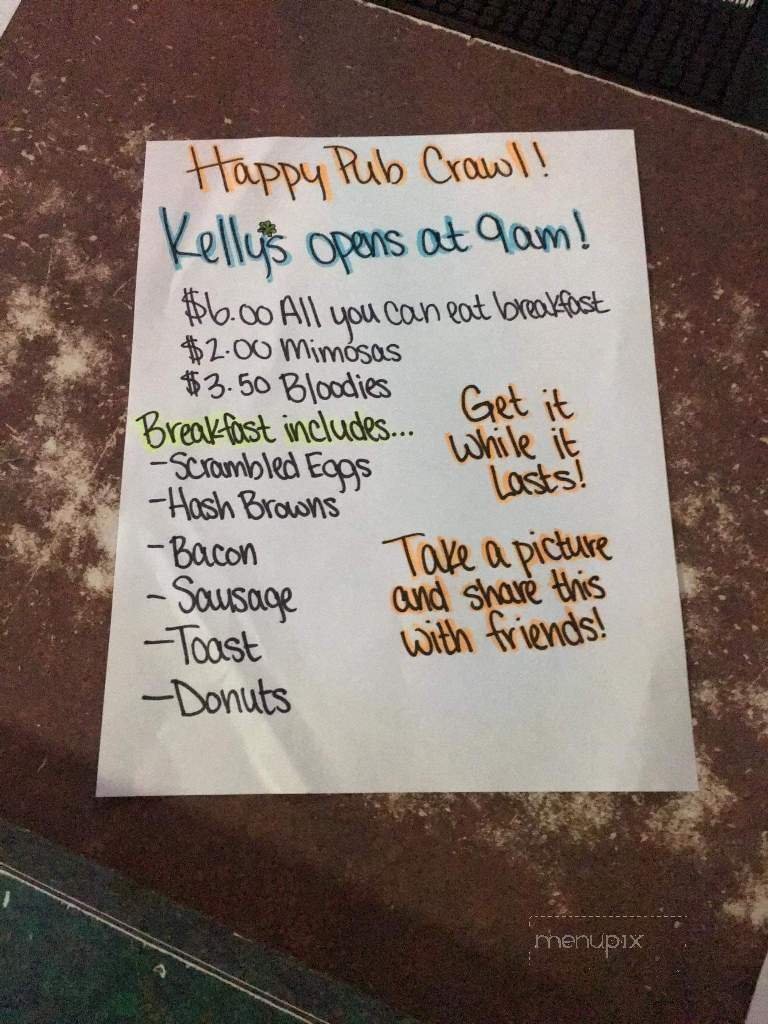 Happy Pub Crawl!
Kelly's opens at 9am!
$6.00 All you can eat breakfast
$2.00 Mimosas
$3.50 Bloodies
Breakfast includes...
-Scrambled Eggs
-Hash Browns
-Bacon
-Sausage
-Toast
-Donuts
Get it
while it
Lasts!
Take a picture
and share this
with friends!
menupix